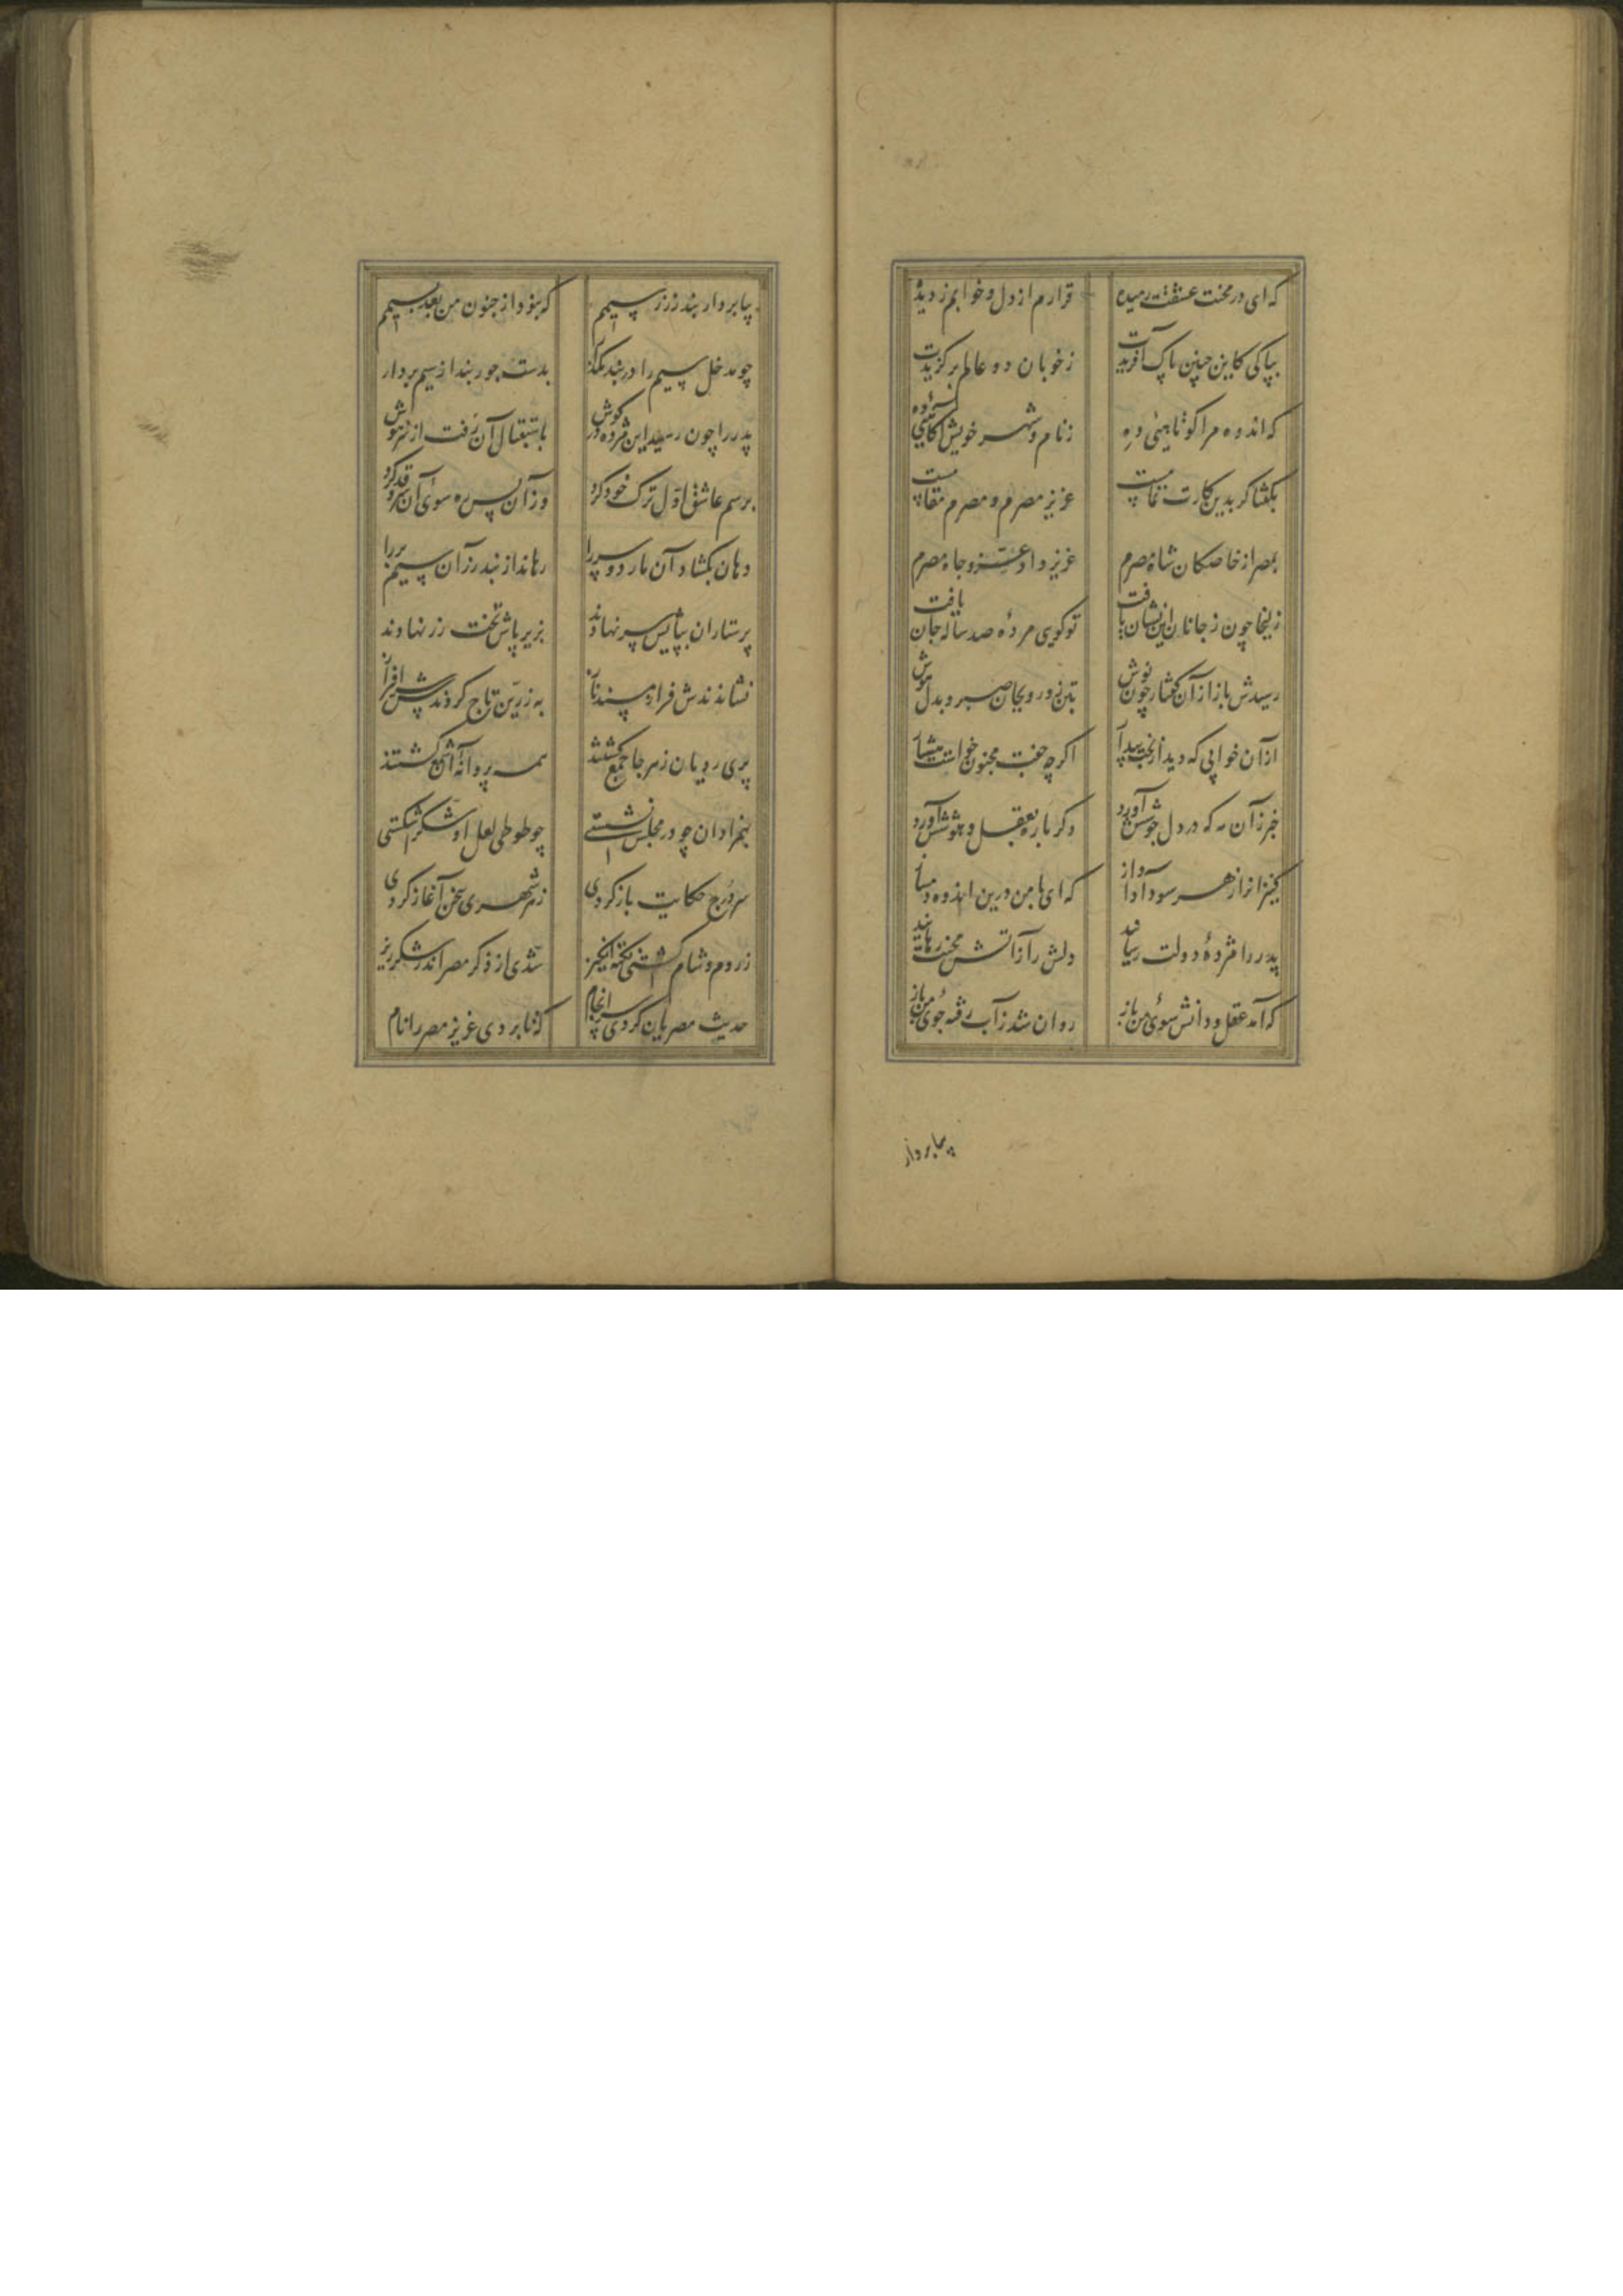 که ای در محنت عشقت رمیده قرارم از دل و خوابم ز دیده
بپاکی کاین چنین پاک آفریدت ز خوبان دو عالم برگزیدت
که اندوه مرا کوتاهیی ده ز نام و شهر خویش آگاهیی ده
بگفتا گر بدین کارت تمامست عزیز مصرم و مصرم مقامست
بمصر از خاصگان شاه مصرم عزیز داد عز و جاه مصرم
زلیخا چون ز جانان این نشان یافت تو گویی مردهٔ صد ساله جان یافت
رسیدش باز از آن گفتار چون نوش بتن زور و بجان صبر و بدل هوش
ازان خوابی که دید از بخت بیدار اگرچه خفت مجنون خواست هشیار
خبر زآن مه که در دل جوشش آورد دگر باره بعقل و هوشش آورد
کنیزانرا ز هر سو داد آواز که ای با من درین اندوه دمساز
پدر را مژدهٔ دولت رسانید دلش را زآتش محنت رهانید
که آمد عقل و دانش سوی من باز روان شد زآب رفته جوی من باز
بیا بردار
بیا بردار بند زر ز سیمم که نبود از جنون من بعد بیمم
چو مدخل سیم را در بند مگذار بدست جود بند از سیم بردار
پدر را چون رسید این مژده در گوش باستقبال آن رفت از سرش هوش
برسم عاشق اول ترک خود کرد وزآن پس ره سوی آن سرو قد کرد
دهان بگشاد آن مار دو سر را رهاند از بند زر آن سیمبر را
پرستاران بپایش سر نهادند بزیر پاش تخت زر نهادند
نشاندندش فراز مسند ناز به زرین تاج کردندش سرافراز
پری رویان ز هر جا جمع گشتند همه پروانهٔ آن شمع گشتند
بهمزادان چو در مجلس نشستی چو طوطی لعل او شکر شکستی
سر درج حکایت باز کردی ز هر شهری سخن آغاز کردی
ز روم و شام گشتی نکته انگیز شدی از ذکر مصر اندر شکرریز
حدیث مصریان کردی سرانجام که تا بردی عزیز مصر را نام